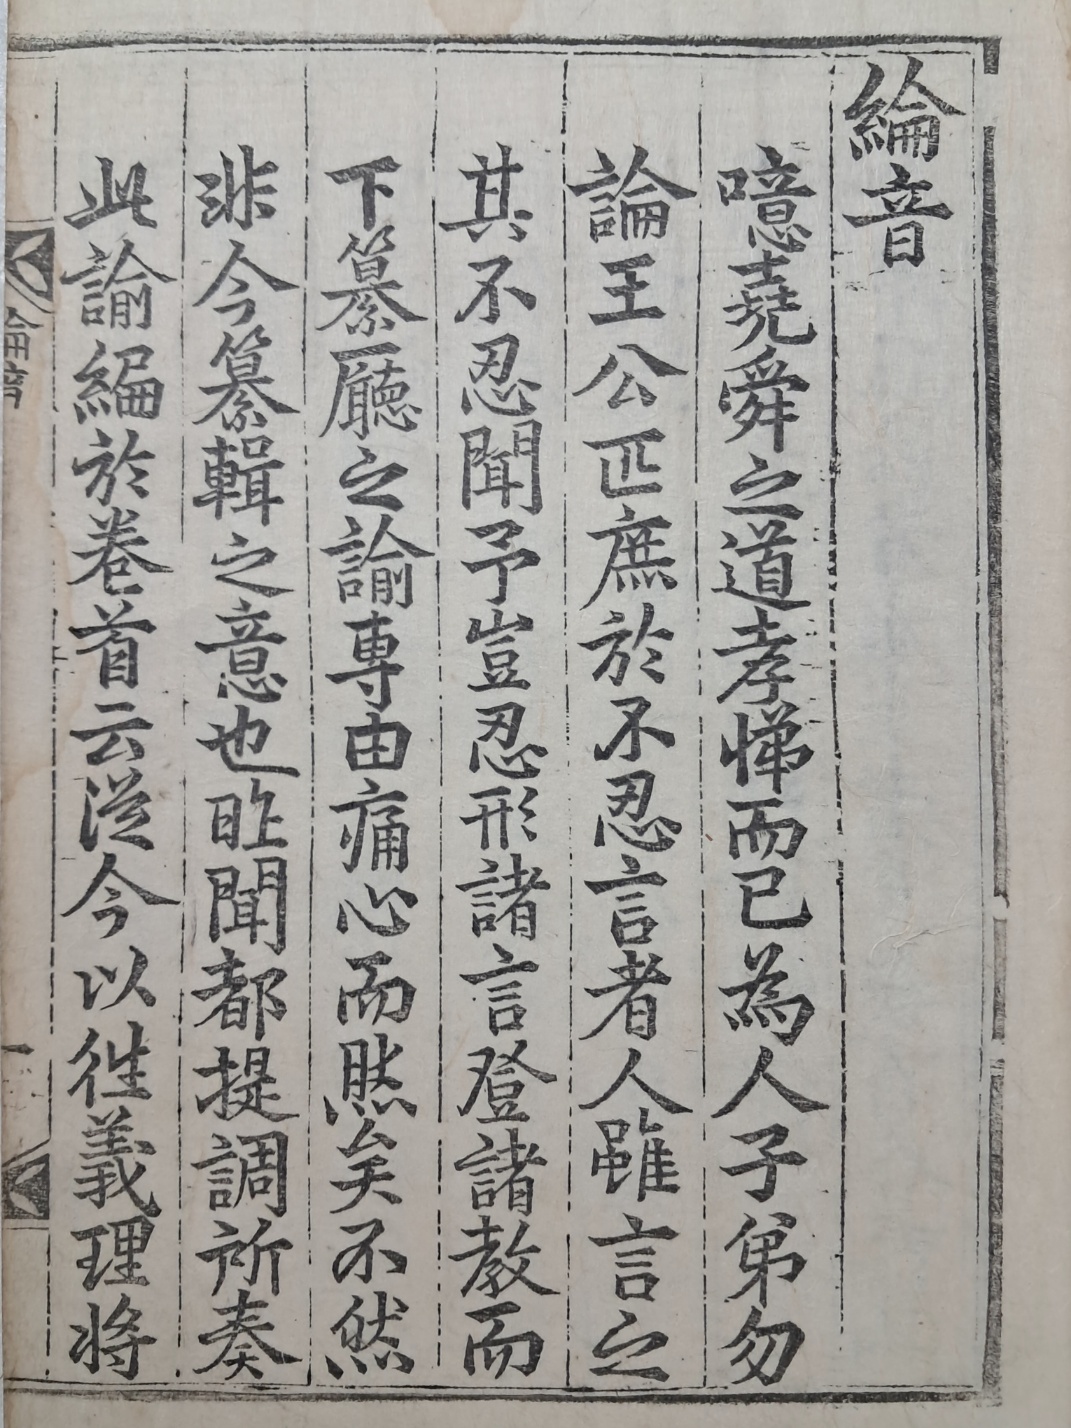 綸音
噫堯舜之道孝悌而已為人子弟勿
論王公匹庶於不忍言者人雖言之
其不忍聞予豈忍形諸言登諸教而
下纂廳之諭専由痛心而然矣不然
非今纂輯之意也昨聞都提調所奏
此諭編於卷首云從今以徃義理將
綸音
一